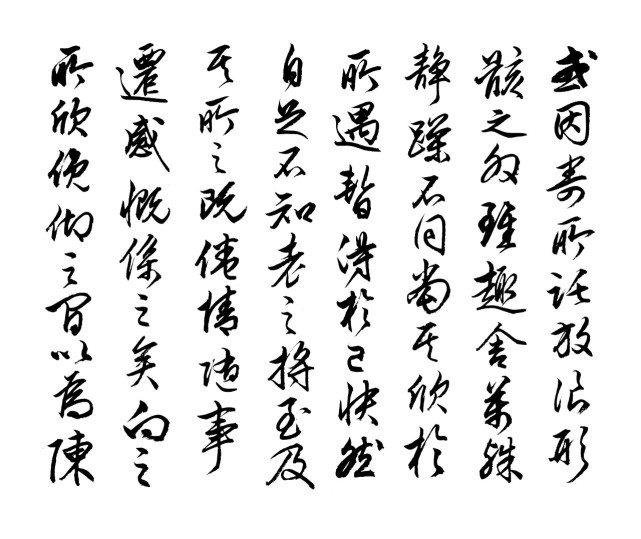 或因寄所託放浪形
骸之外雖趣舍萬殊
靜躁不同當其欣於
所遇暫得於己快然
自足不知老之將至及
其所之既倦情隨事
遷感慨係之矣向之
所欣俛仰之間以為陳